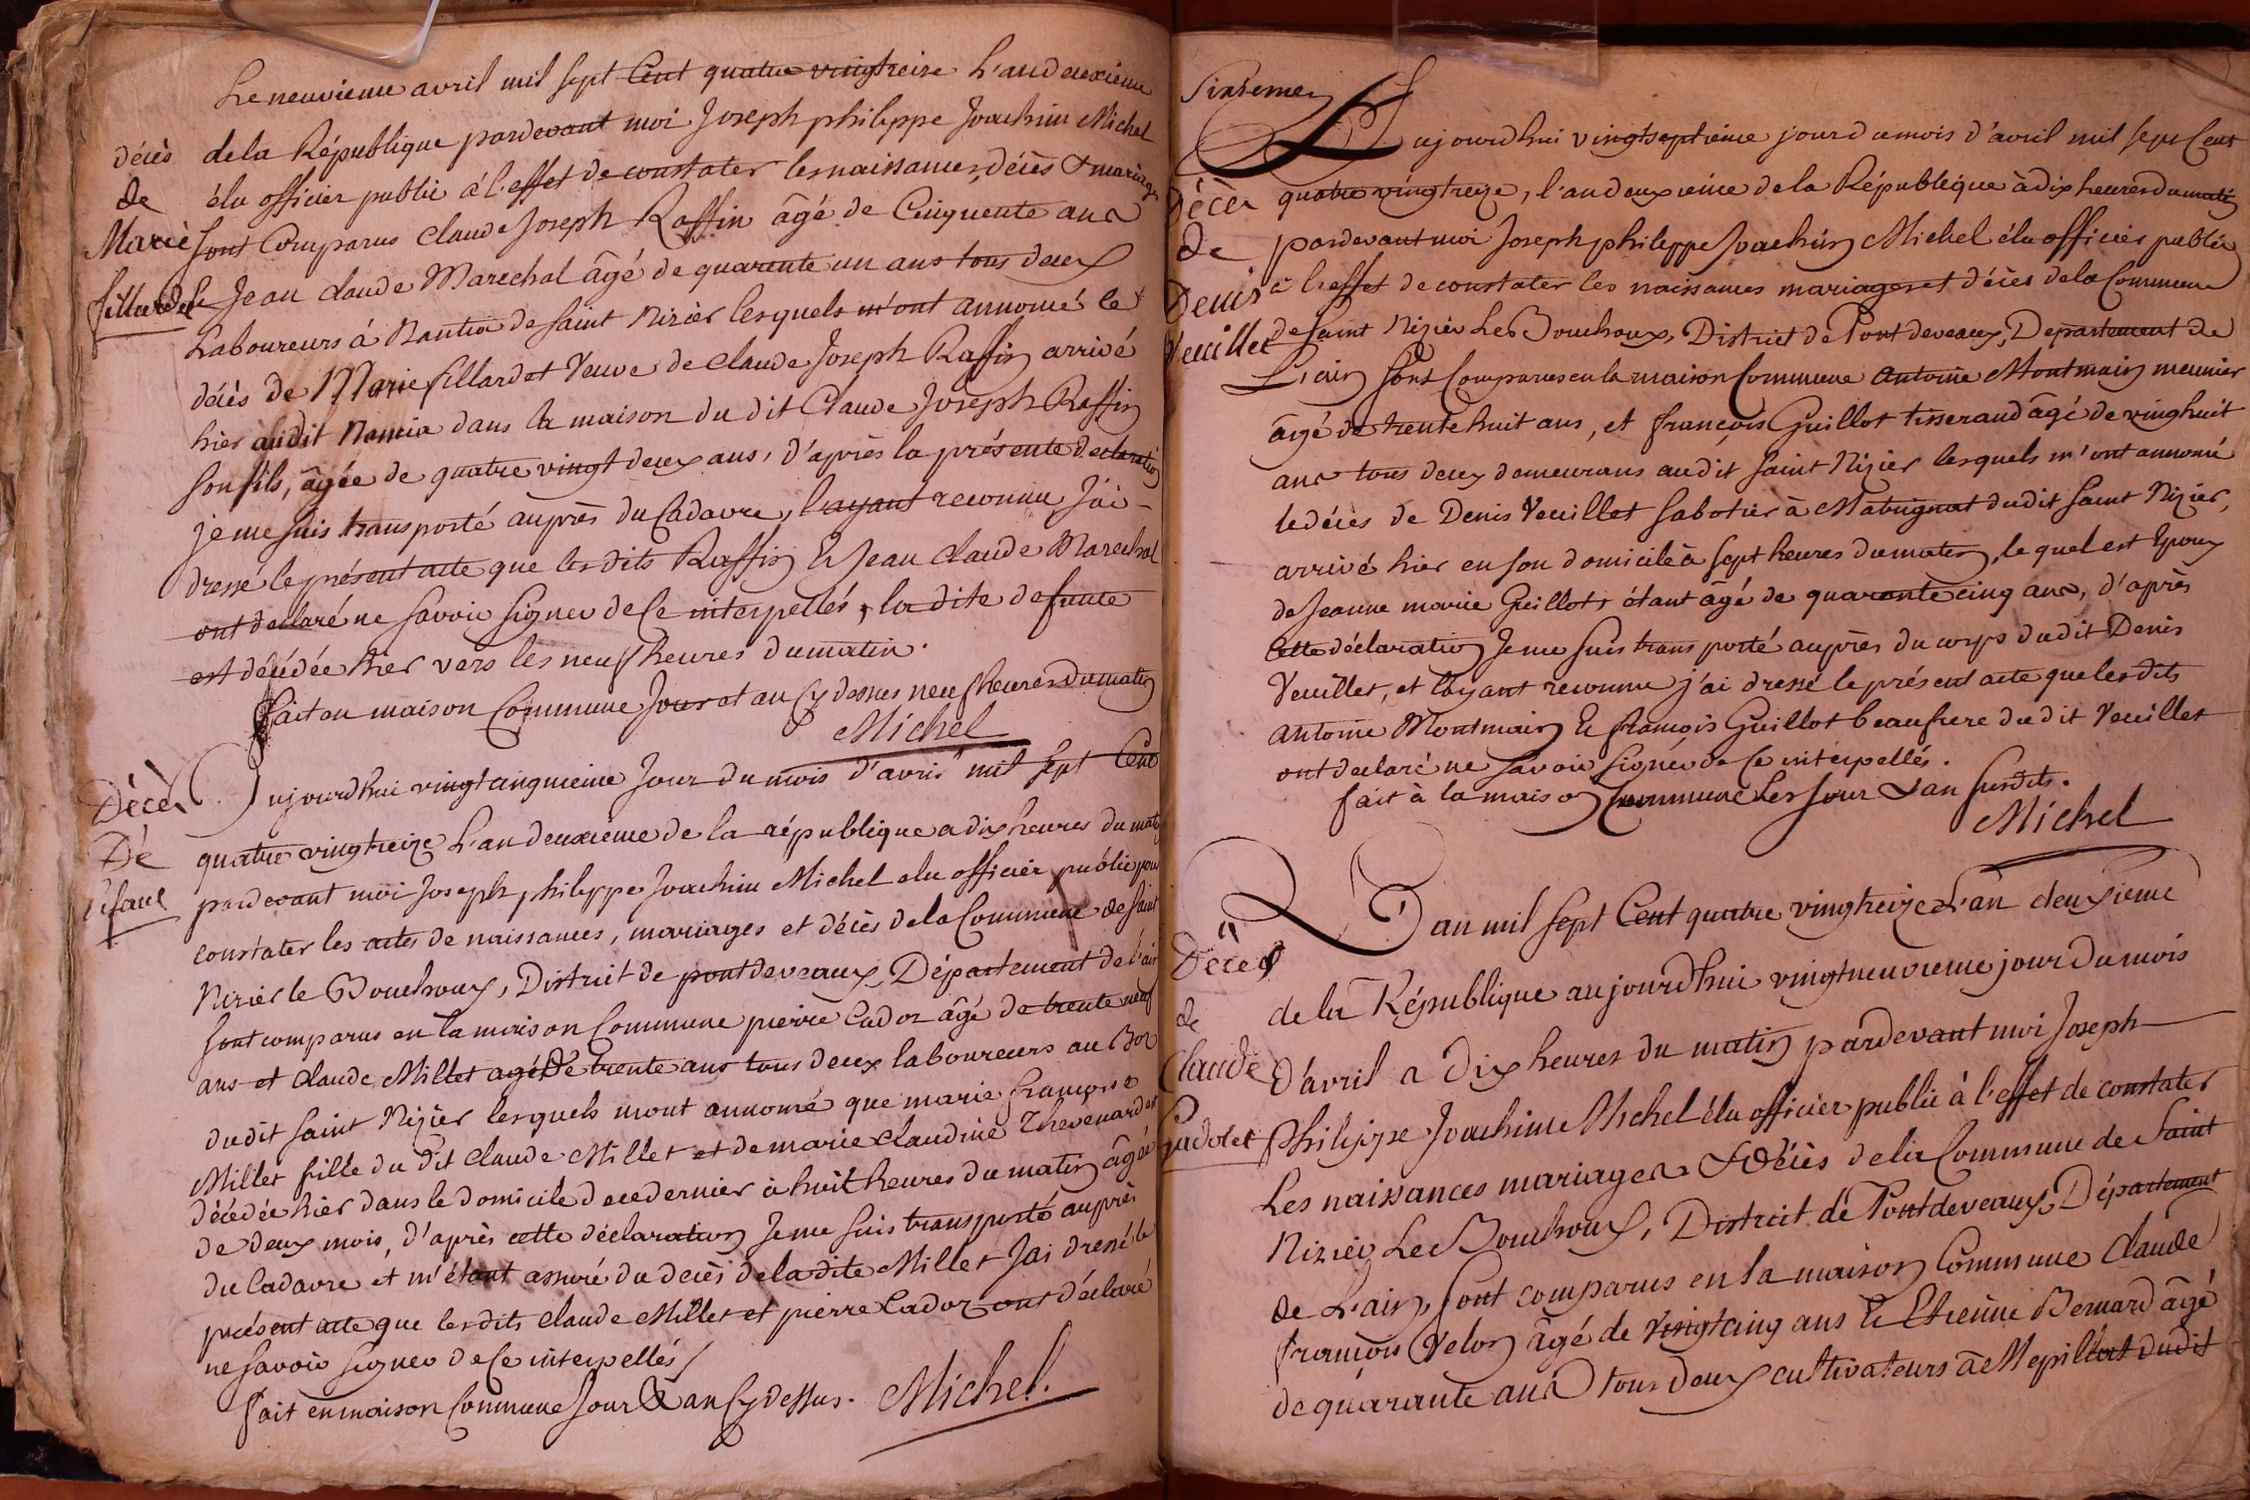 Le neuvieme avril mil sept Cent quatre vingtreize L'an deuxieme
décès de la République pardevant moi Joseph philippe Joachim Michel
de élu officier public à l'effet de constater les naissances, décès & mariages
Marie sont Comparus Claude Joseph Raffin âgé de Cinquante ans
fillardet & Jean Claude Marechal âgé de quarante un ans tous deux
Laboureurs à Nantia de saint Nizier lesquels m'ont annoncé le
décès de Marie fillardet Veuve de Claude Joseph Raffin arrivé
hier audit Nancia dans la maison du dit Claude Joseph Raffin
son fils, âgée de quatre vingt deux ans, d'après la présente declaration
je me suis transporté auprès du Cadavre, l'ayant reconnu J'ai
dressé le présent acte que lesdits Raffin & Jean Claude Marechal
ont declaré ne savoir signer de ce interpellés, la dite defunte
est décédée hier vers les neuf heures du matin.
fait en maison Commune Jour et an Cy dessus neuf heures du matin
Michel
Décès Aujourdhui vingt cinquieme Jour du mois d'avril mil sept Cent
De quatre vingtreize L'an deuxieme de la république a dix heures du matin
l'efant pardevant moi Joseph philippe Joachim Michel elu officier public pour
constater les actes de naissances, mariages et décès de la Commune de saint
Nizier le Bouchoux, District de pont de veaux, Département de l'ain
sont comparus en la maison Commune pierre Cadoz âgé de trente neuf
ans et Claude Millet agé De trente ans tous deux laboureurs au Boz
du dit saint Nizier lesquels mont annoncé que marie françoise
Millet fille du dit Claude Millet et de marie Claudine Thevenard est
décédée hier dans le domicile de ce dernier à huit heures du matin âgée
de deux mois, d'après cette déclaration Je me suis transporté auprès
du Cadavre et m'étant assuré du deces de la dite Millet J'ai dressé le
présent acte que lesdits Claude Millet et pierre Cadoz ont déclaré
ne savoir signer de ce interpellés
fait en maison Commune Jour & an Cy dessus. Michel.
Sixieme
Aujourdhui vingtseptieme jour du mois d'avril mil sept Cent
Décès quatre vingtreize, l'an deuxieme de la République à dix heures du matin
de pardevant moi Joseph philippe Joachim Michel élu officier public
Denis à l'effet de constater les naissances mariages et décès de la Commune
Veuillet de saint Nizier Le Bouchoux, District de Pont de veaux, Departement de
L'ain sont Comparus en la maison Commune Antoine Montmain meunier
âgé de trente huit ans, et françois Guillot tisserand âgé de vinghuit
ans tous deux demeurans audit saint Nizier lesquels m'ont annoncé
le décès de Denis Veuillet sabotier à Matrignat dudit saint Nizier,
arrivé hier en son domicile à sept heures du matin, le quel est Epoux
de Jeanne marie Guillot, étant âgé de quarante cinq ans, d'après
Cette déclaration Je me suis transporté auprès du corps dudit Denis
Veuillet, et l'ayant reconnu j'ai dressé le présent acte que lesdits
antoine Montmain & françois Guillot beaufrere du dit Veuillet
ont declaré ne savoir signer de Ce interpellés.
fait à la maison Commune Les Jour & an susdits.
Michel
L'an mil sept Cent quatre vingtreize L'an deuxieme
Décès de la République aujourdhui vingtneuvieme jour du mois
de d'avril a Dix heures du matin pardevant moi Joseph
Claude Philippe Joachim Michel élu officier public à l'effet de constater
Gadolet Les naissances mariages & Décès de la Commune de saint
Nizier Le Bouchoux, District de Pontdeveaux, Département
de L'ain, sont comparus en la maison Commune Claude
françois Velon âgé de vingt cinq ans & Etienne Bernard âgé
de quarante ans tous deux cultivateurs à Mepillat dudit